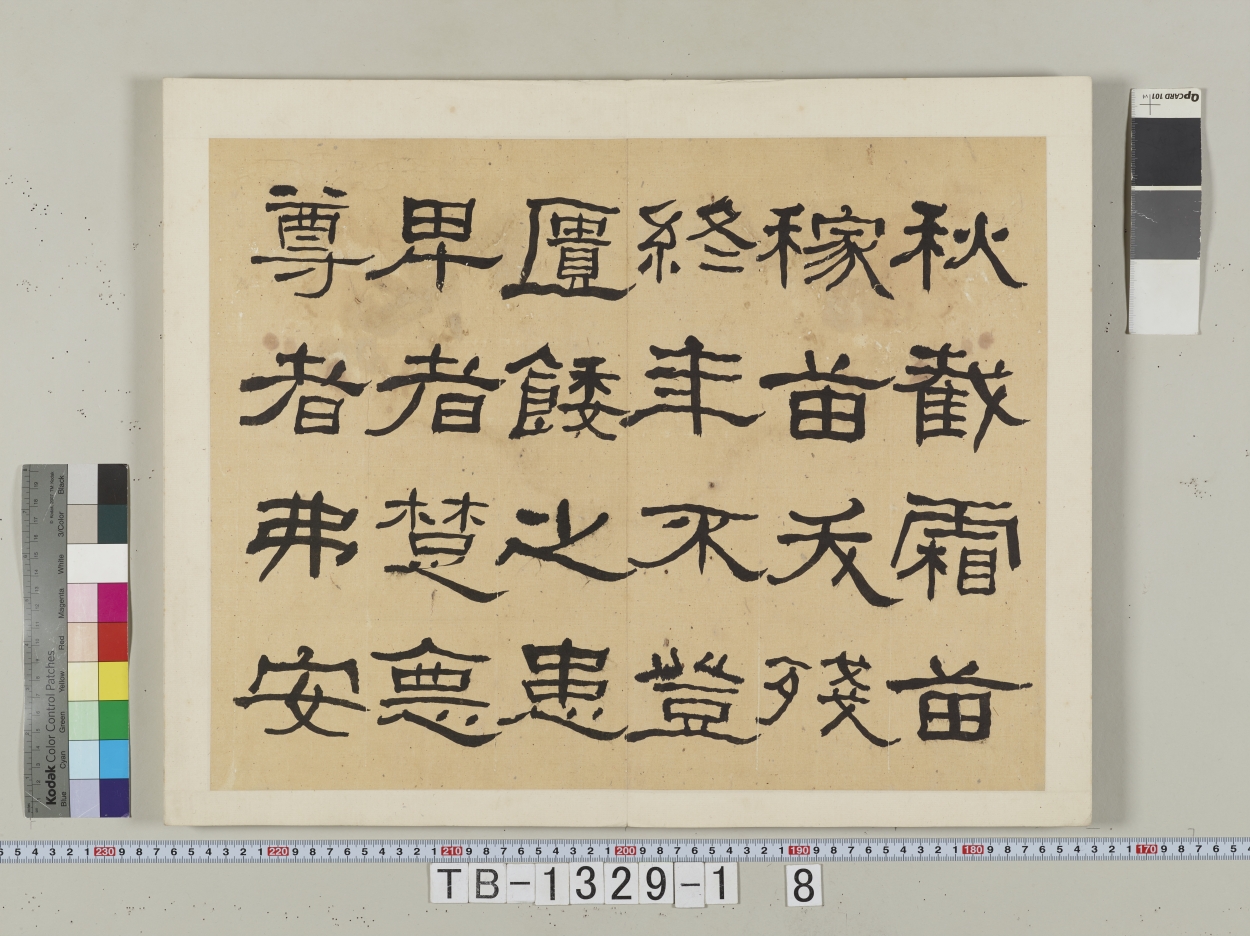 秋截霜苗
稼苗夭殘
終年不豊
匱餧之患
卑者楚
尊者弗安
QPCARD 101
Kodak Color Control Patches
Blue Cyan Green Yellow Red Magenta White 3/Color Black
230 220 210 200 190 180 170
TB-1329-1 8